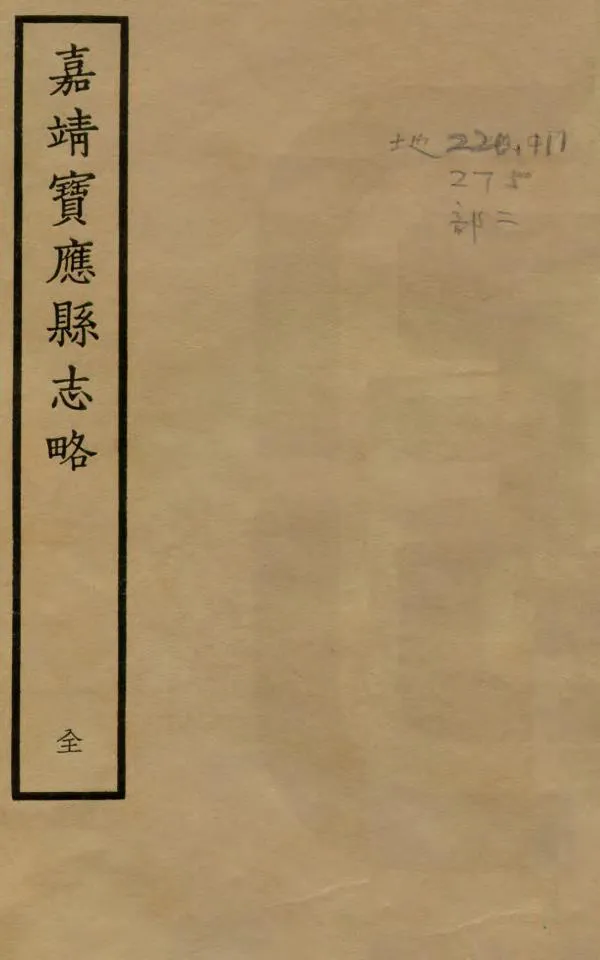 嘉靖寶應縣志略
全
地 220.411
275
部二